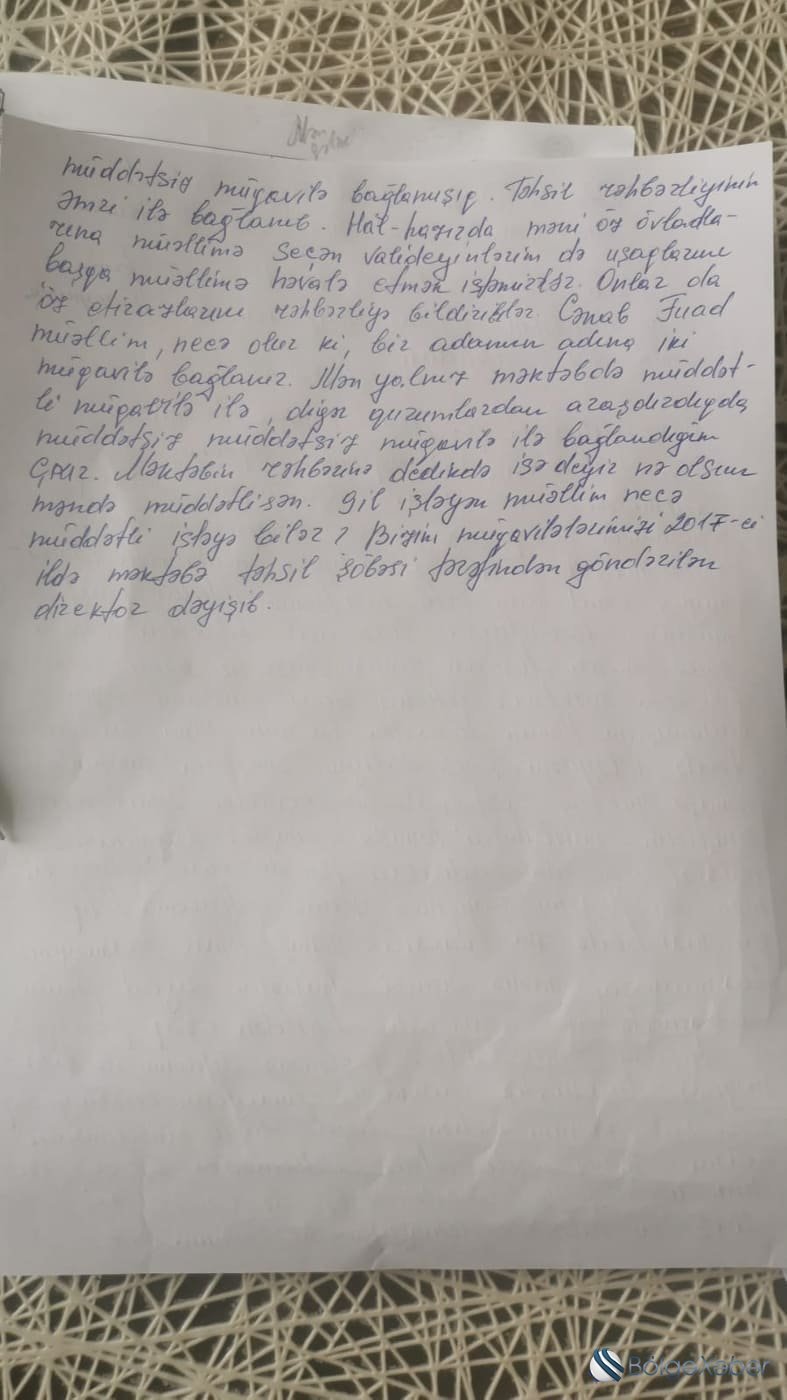 müddətsiz müqavilə bağlamışıq. Təhsil rəhbərliyinin
əmri ilə bağlanıb. Hal-hazırda məni öz övladla-
rına müəllimə seçən valideyinlərim də uşaqlarını
başqa müəllimə həvalə etmək istəmirlər. Onlar da
öz etirazlarını rəhbərliyə bildiriblər. Cənab Fuad
müəllim, necə olur ki, bir adamın adına iki
müqavilə bağlanır. Mən yalnız məktəbdə müddət-
li müqavilə ilə, digər qurumlardan araşdırdıqda
müddətsiz müddətsiz müqavilə ilə bağlandığım
çıxır. Məktəbin rəhbərinə dedikdə isə deyir nə olsun
məndə müddətlisən. 9 il işləyən müəllim necə
müddətli işləyə bilər? Bizim müqavilələrimizi 2017-ci
ildə məktəbə təhsil şöbəsi tərəfindən göndərilən
direktor dəyişib.
BölgəXəbər